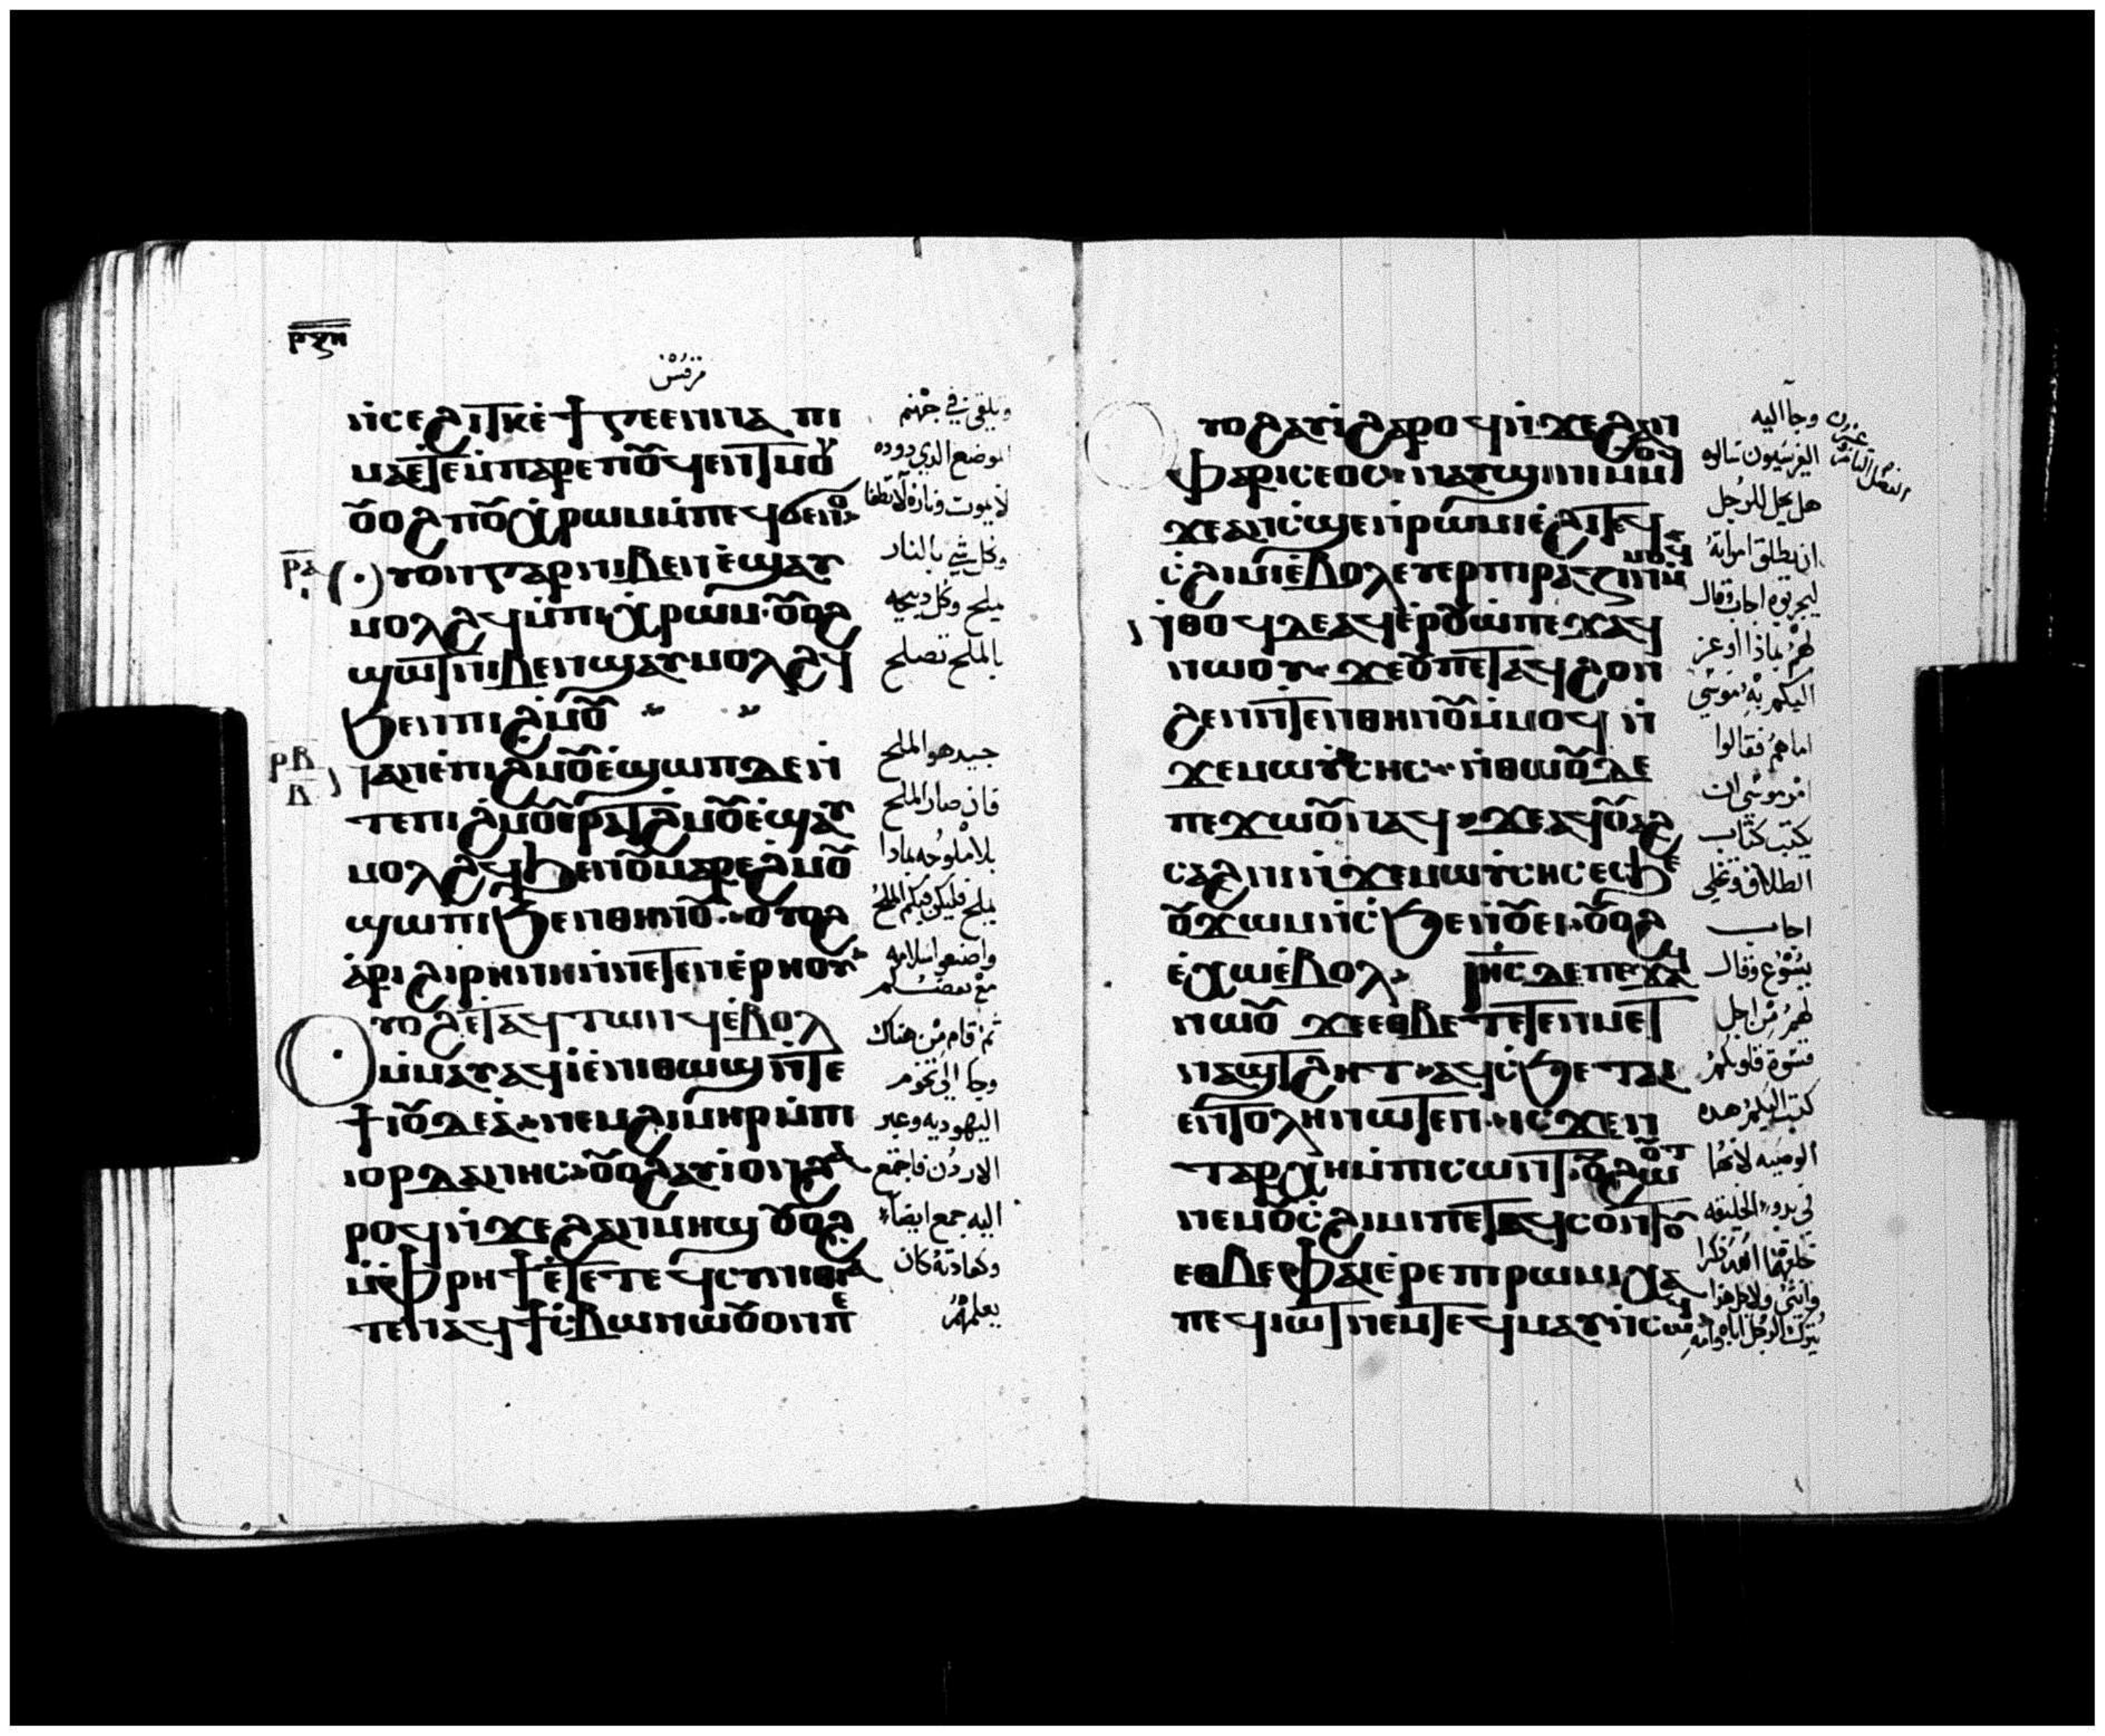 ⲣⲝⲏ
مرقس
ⲛ̀ⲥⲉϩⲓⲧⲕ ⲉ̀ϯⲅⲉⲉⲛⲛⲁ ⲡⲓ
ⲙⲁ ⲉ̀ⲧⲉⲙ̀ⲡⲁⲣⲉ ⲡⲟ̅ϥⲉⲛⲧ ⲙⲟⲩ
ⲟ̅ⲟϩ ⲡⲟ̅ⲭⲣⲱⲙ ⲙ̀ⲡⲉϥϭⲉⲛⲟ
ⲣ̅ⲁ̅ ⲟⲩⲟⲛ ⲅⲁⲣ ⲛⲓⲃⲉⲛ ⲉ̀ϣⲁⲩ
ⲙⲟⲗϩϥ ⲙ̀ⲡⲓⲭⲣⲱⲙ· ⲟ̅ⲟϩ
ϣⲱⲧ ⲛⲓⲃⲉⲛ ϣⲁⲩⲙⲟⲗϩϥ
ϧⲉⲛ ⲡⲓϩⲙⲟ̅
ⲣ̅ⲃ̅ ⲃ̅ ⲛⲁⲛⲉ ⲡⲓϩⲙⲟ̅ ⲉ̀ϣⲱⲡ ⲇⲉ ⲛ̀
ⲧⲉ ⲡⲓϩⲙⲟ̅ ⲉⲣⲁⲧϩⲙⲟ̅ ⲉ̀ϣⲁⲩ
ⲙⲟⲗϩϥ ϧⲉⲛ ⲟ̅ ⲙⲁⲣⲉ ϩⲙⲟ̅
ϣⲱⲡⲓ ϧⲉⲛ ⲑⲏⲛⲟ̅· ⲟⲩⲟϩ
ⲁ̀ⲣⲓϩⲓⲣⲏⲛⲏ ⲛ̀ⲛⲉⲧⲉⲛⲉ̀ⲣⲏⲟⲩ
ⲟⲩⲟϩ ⲉ̀ⲧⲁϥⲧⲱⲛϥ ⲉ̀ⲃⲟⲗ
ⲙ̀ⲙⲁⲩ ⲁϥⲓ̀ ⲉ̀ⲛⲓⲑⲱϣ ⲛ̀ⲧⲉ
ϯⲓⲟ̅ⲇⲉⲁ̀· ⲛⲉⲙ ϩⲓⲙⲏⲣ ⲙ̀ⲡⲓ
ⲓⲟⲣⲇⲁⲛⲏⲥ· ⲟ̅ⲟϩ ⲁⲩⲓ̀ ⲟⲛ ϩⲁ
ⲣⲟϥ ⲛ̀ϫⲉ ϩⲁⲛⲙⲏϣ ⲟ̅ⲟϩ
ⲙ̀ⲫⲣⲏϯ ⲉ̀ⲧⲉ ⲧⲉϥⲥⲩⲛⲏⲑⲓⲁ
ⲧⲉ ⲛⲁϥϯⲥ̀ⲃⲱ ⲛⲱⲟ̅ ⲟⲛ ⲡⲉ
ويلقى في جهنم
الموضع الذي دوده
لا يموت وناره لا تطفا
وكل شي بالنار
يملح وكل ذبيحه
بالملح تصلح
جيد هو الملح
فان صار الملح
بلا ملوحه بماذا
يملح فليكن فيكم الملح
واصنعوا سلامه
مع بعضكم
ثم قام من هناك
وجا الى تخوم
اليهوديه وعبر
الاردن فاجتمع
اليه جمع ايضا
وكعادته كان
يعلمهم
ⲟⲩⲟϩ ⲁⲩⲓ̀ ϩⲁⲣⲟϥ ⲛ̀ϫⲉ ϩⲁⲛ
ⲫⲁⲣⲓⲥⲉⲟⲥ· ⲛⲁⲩϣⲓⲛⲓ ⲙ̀ⲙⲟϥ
ϫⲉ ⲁⲛ ⲥ̀ϣⲉ ⲛ̀ⲣⲱⲙⲓ ⲉ̀ϩⲓ ⲧⲉϥ
ⲥ̀ϩⲓⲙⲓ ⲉ̀ⲃⲟⲗ ⲉⲩⲉⲣⲡⲓⲣⲁⲍⲓⲛ ⲙ̀ⲙⲟϥ
ⲛ̀ⲑⲟϥ ⲇⲉ ⲁϥⲉ̀ⲣⲟ̅ⲱ̀ ⲡⲉϫⲁϥ
ⲛⲱⲟⲩ· ϫⲉ ⲟ̅ ⲡⲉⲧⲁϥϩⲟⲛ
ϩⲉⲛ ⲛ̀ⲧⲉⲛ ⲑⲏⲛⲟ̅ ⲙ̀ⲙⲟϥ ⲛ̀
ϫⲉ ⲙⲱⲩⲥⲏⲥ· ⲛ̀ⲑⲱⲟ̅ ⲇⲉ
ⲡⲉϫⲱⲟ̅ ⲛⲁϥ· ϫⲉ ⲁϥⲟ̅ⲁϩ
ⲥⲁϩⲛⲓ ⲛ̀ϫⲉ ⲙⲱⲩⲥⲏⲥ ⲉⲥϧⲉ
ⲟ̅ϫⲱⲙ ⲛ̀ⲥ̀ϧⲉⲛⲟ̅ⲉⲓ· ⲟ̅ⲟϩ
ⲉ̀ⲭⲱ ⲉ̀ⲃⲟⲗ· ⲓⲏ̅ⲥ̅ ⲇⲉ ⲡⲉϫⲁϥ
ⲛⲱⲟ̅ ϫⲉ ⲉⲑⲃⲉ ⲧⲉⲧⲉⲛⲙⲉⲧ
ⲛⲁϣⲧϩⲏⲧ· ⲁϥⲥ̀ϧⲉ ⲧⲁⲓ
ⲉⲛⲧⲟⲗⲏ ⲛⲱⲧⲉⲛ· ⲓⲥϫⲉⲛ
ⲧⲁⲣⲭⲏ ⲙ̀ⲡⲓⲥⲱⲛⲧ· ⲟ̅ϩⲱⲟⲩⲧ
ⲛⲉⲙ ⲟ̅ⲥ̀ϩⲓⲙⲓ ⲡⲉⲧⲁϥⲥⲟⲛⲧⲟ̅
ⲉⲑⲃⲉ ⲫⲁⲓ ⲉ̀ⲣⲉ ⲡⲓⲣⲱⲙⲓ ⲭⲁ
ⲡⲉϥⲓⲱⲧ ⲛⲉⲙ ⲧⲉϥⲙⲁⲩ ⲛ̀ⲥⲱϥ
وجا اليه
الفريسيون سالوه
هل يحل للرجل
ان يطلق امراته
ليجربوه اجاب وقال
لهم بماذا اوعز
اليكم به موسى
اما هم فقالوا
امر موسى ان
يكتب كتاب
الطلاق وتخلى
اجاب
يسوع وقال
لهم من اجل
قسوة قلوبكم
كتب اليكم هذه
الوصيه لانهما
في بدو الخليقه
خلقهما الله ذكرا
وانثى ولاجل هذا
يترك الرجل اباه وامه